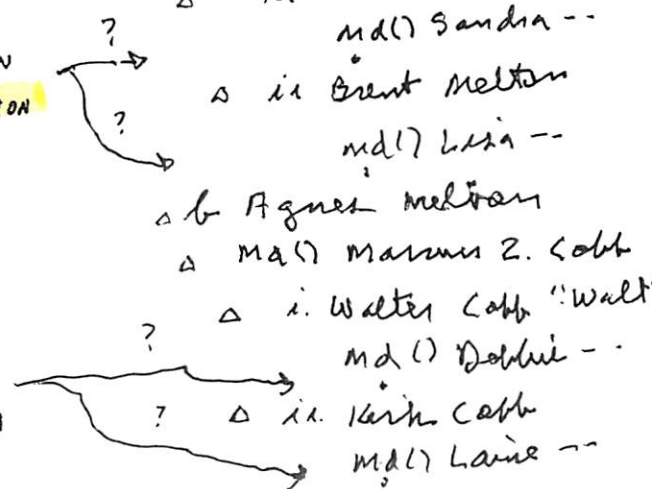 ? md() Sandra --
ON
△ ii Brent Melton
? md() Lisa --
△ b Agnes Melton
△ Md() Marcus Z. Cobb
△ i. Walter Cobb "Walt"
? md() Debbie --
? △ ii. Kirk Cobb
md() Laine --